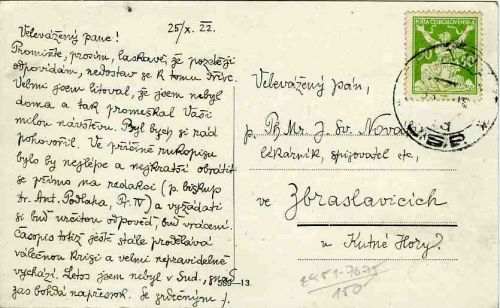 25/X. 22.
Velevážený pane!
Promiňte, prosím, laskavě, že později
odpovídám, nedostav se k tomu dříve.
Velmi jsem litoval, že jsem nebyl
doma a tak promeškal Vaši
milou návštěvu. Byl bych si rád
pohovořil. Ve příčině rukopisu
bylo by nejlépe a nejkratší obrátit
se přímo na redakci (p. biskup
Dr. Ant. Podlaha, Ph IV) a vyžádati
si buď určitou odpověď, buď vrácení.
Časopis totiž ještě stále prodělává
válečnou krizi a velmi nepravidelně
vychází. Letos jsem nebyl v Sud.,
zas bohdá napřesrok. Se srdečným
589—13.
POŠTA ČESKOSLOVENSKÁ
Velevážený pán,
p. Ph Mr. J. Sv. Novák
lékárník, spisovatel etc,
ve
Zbraslavicích
u Kutné Hory?
150